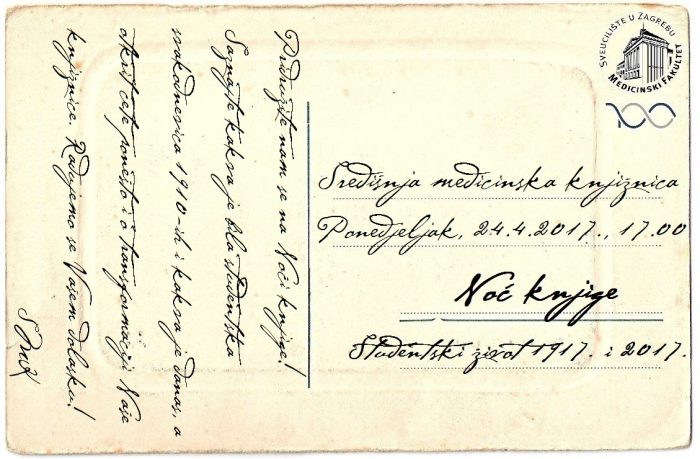 Pridružite nam se na Noći knjige!
Saznajte kakva je bila studentska
svakodnevica 1910-ih i kakva je danas, a
otkrit ćete ponešto i o transformaciji Vaše
knjižnice. Radujemo se Vašem dolasku!
SMK
SVEUČILIŠTE U ZAGREBU
MEDICINSKI FAKULTET
100
Središnja medicinska knjižnica
Ponedjeljak, 24.4.2017., 17.00
Noć knjige
Studentski život 1917. i 2017.